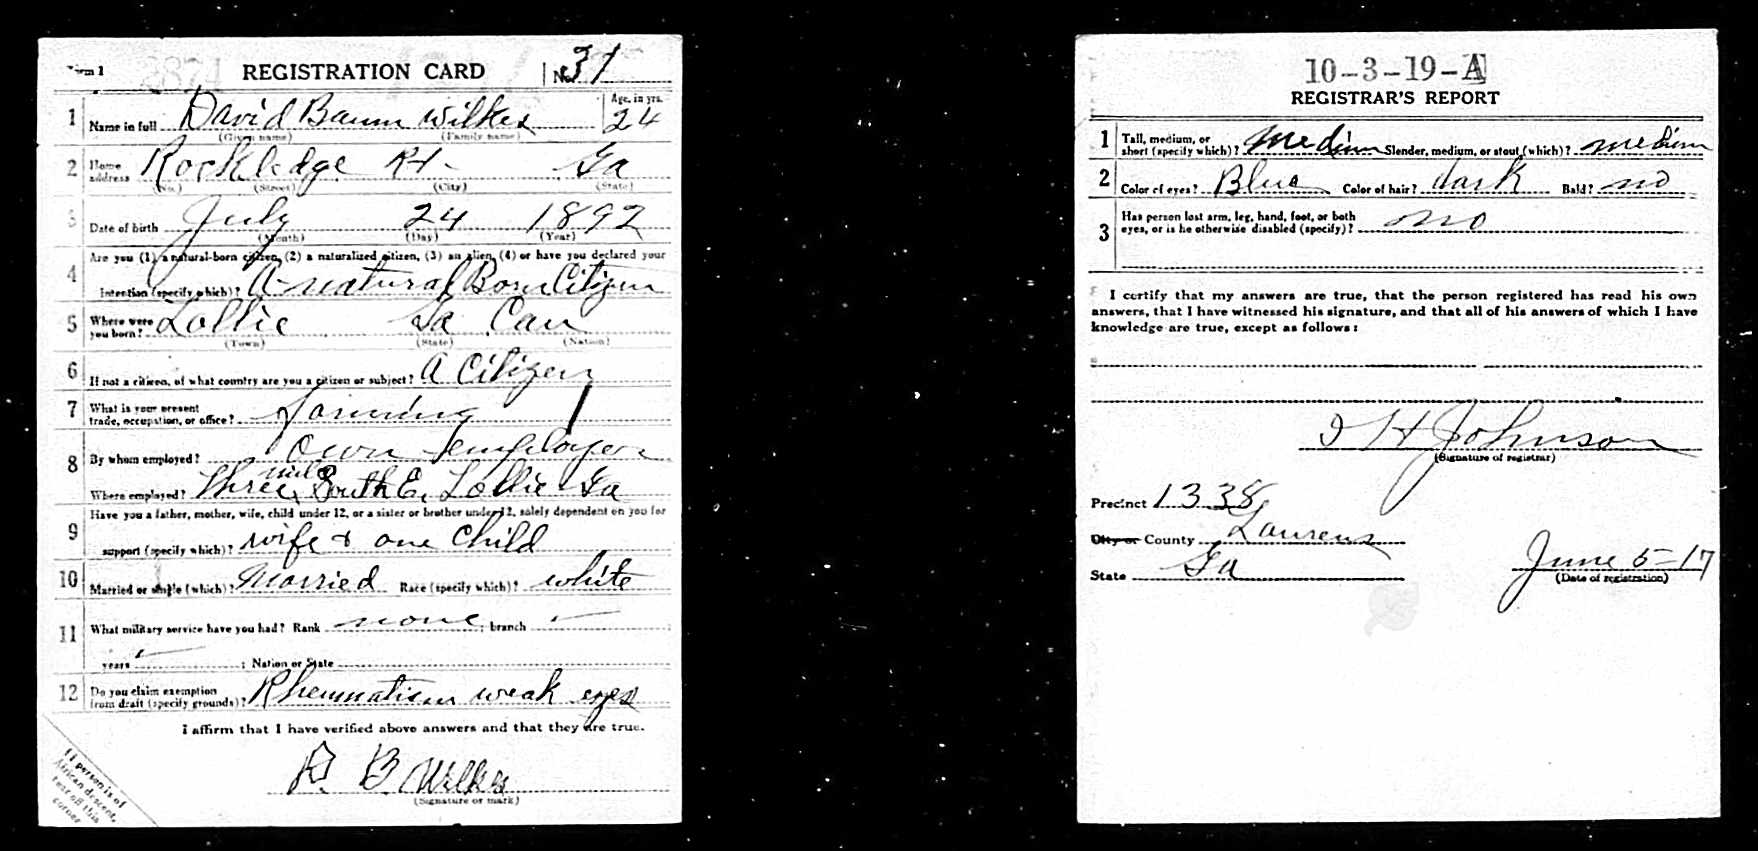 Form 1
REGISTRATION CARD No. 31
1 Name in full David Baum Wilkes Age, in yrs. 24
(Given name) (Family name)
2 Home address Rockledge Rt Ga
(No.) (Street) (City) (State)
3 Date of birth July 24 1892
(Month) (Day) (Year)
4 Are you (1) a natural-born citizen, (2) a naturalized citizen, (3) an alien, (4) or have you declared your
intention (specify which)? A natural Born Citizen
5 Where were you born? Lollie Ga
(Town) (State) (Nation)
6 If not a citizen, of what country are you a citizen or subject? A Citizen
7 What is your present trade, occupation, or office? farming
8 By whom employed? own employer
Where employed? Three mile South E. Lollie Ga
9 Have you a father, mother, wife, child under 12, or a sister or brother under 12, solely dependent on you for
support (specify which)? wife & one child
10 Married or single (which)? Married Race (specify which)? white
11 What military service have you had? Rank none ; branch
years ; Nation or State
12 Do you claim exemption from draft (specify grounds)? Rheumatism weak eyes
I affirm that I have verified above answers and that they are true.
D. B. Wilkes
(Signature or mark)
If person is of
African descent,
tear off this
corner
10-3-19-A
REGISTRAR'S REPORT
1 Tall, medium, or short (specify which)? Medium Slender, medium, or stout (which)? medium
2 Color of eyes? Blue Color of hair? dark Bald? no
3 Has person lost arm, leg, hand, foot, or both
eyes, or is he otherwise disabled (specify)? no
I certify that my answers are true, that the person registered has read his own
answers, that I have witnessed his signature, and that all of his answers of which I have
knowledge are true, except as follows:
J H Johnson
(Signature of registrar)
Precinct 1338
City or County Laurens
State Ga June 5-17
(Date of registration)